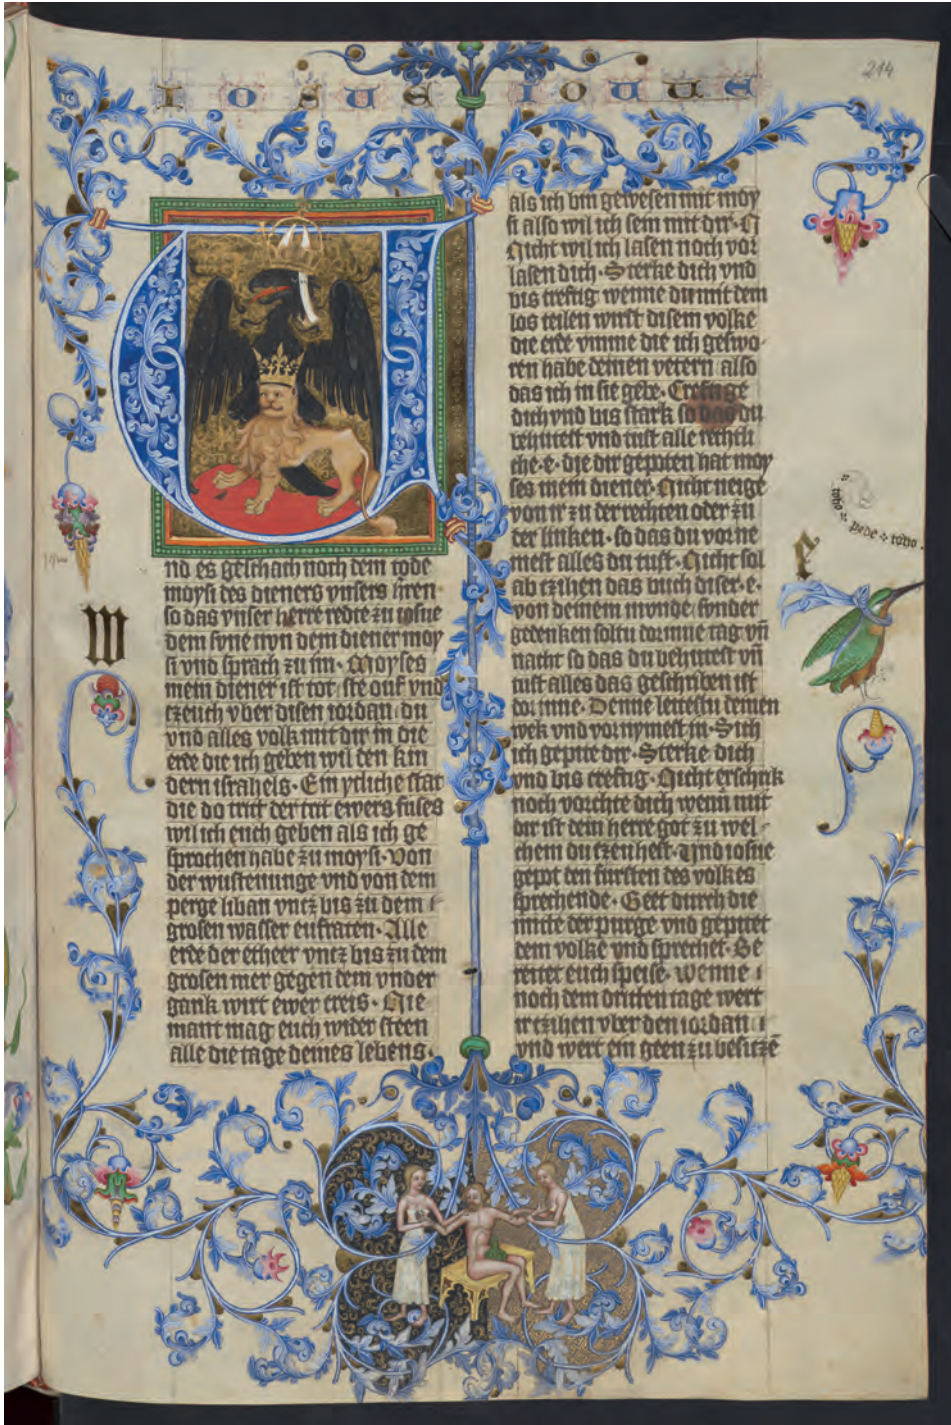 IOSUE IOUUE
214
nd es geschach noch dem tode
moysi des dieners vnsers hren
so das vnser herre redte zu iosue
dem syne nvn dem diener moy
si vnd sprach zu im · Moyses
mein diener ist tot · ste ouf vnd
tzeuch vber disen iordan · du
vnd alles volk mit dir in die
erde die ich geben wil den kin
dern israhels · Ein ytliche stat
die do trit der trit ewers fuses
wil ich euch geben als ich ge
sprochen habe zu moysi · Von
der wustenunge vnd von dem
perge liban vntz bis zu dem
grosen wasser eufraten · Alle
erde der etheer vntz bis zu dem
grosen mer gegen dem vnder
gank wirt ewer creis · Nie
mant mag euch wider steen
alle die tage deines lebens ·
W
als ich bin gewesen mit moy
si also wil ich sein mit dir · N
Nicht wil ich lasen noch vor
lasen dich · Sterke dich vnd
bis creftig wenne du mit dem
los teilen wirst disem volke
die erde vmme die ich geswo
ren habe deinen vetern also
das ich in sie gebe · Creftige
dich vnd bis stark so das du
behutest vnd tust alle rechtli
che · e · die dir gepoten hat moy
ses mein diener · Nicht neige
von ir zu der rechten oder zu
der linken · so das du vorne
mest alles du tust · Nicht sol
ab tzihen das buch diser · e ·
von deinem munde sonder
gedenken soltu dorinne tag vn̄
nacht so das du behutest vn̄
tust alles das geschriben ist
dor inne · Denne leitestu deinen
wek vnd vornymest in · Sich
ich gepite dir · Sterke dich
vnd bis creftig · Nicht erschrik
noch vorchte dich wenn mit
dir ist dein herre got zu wel
chem du tzeuhest · Vnd iosue
gepot den fursten des volkes
sprechende · Geet durch die
mitte der purge vnd gepitet
dem volke vnd sprechet · Be
reitet euch speise · wenne
noch dem dritten tage wert
ir tzihen vber den iordan
vnd wert ein geen zu besitzē
toho pzde toho
e